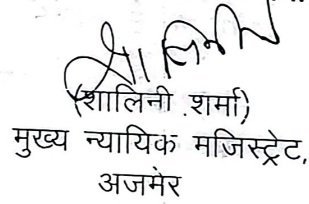 शालिनी
(शालिनी शर्मा)
मुख्य न्यायिक मजिस्ट्रेट,
अजमेर